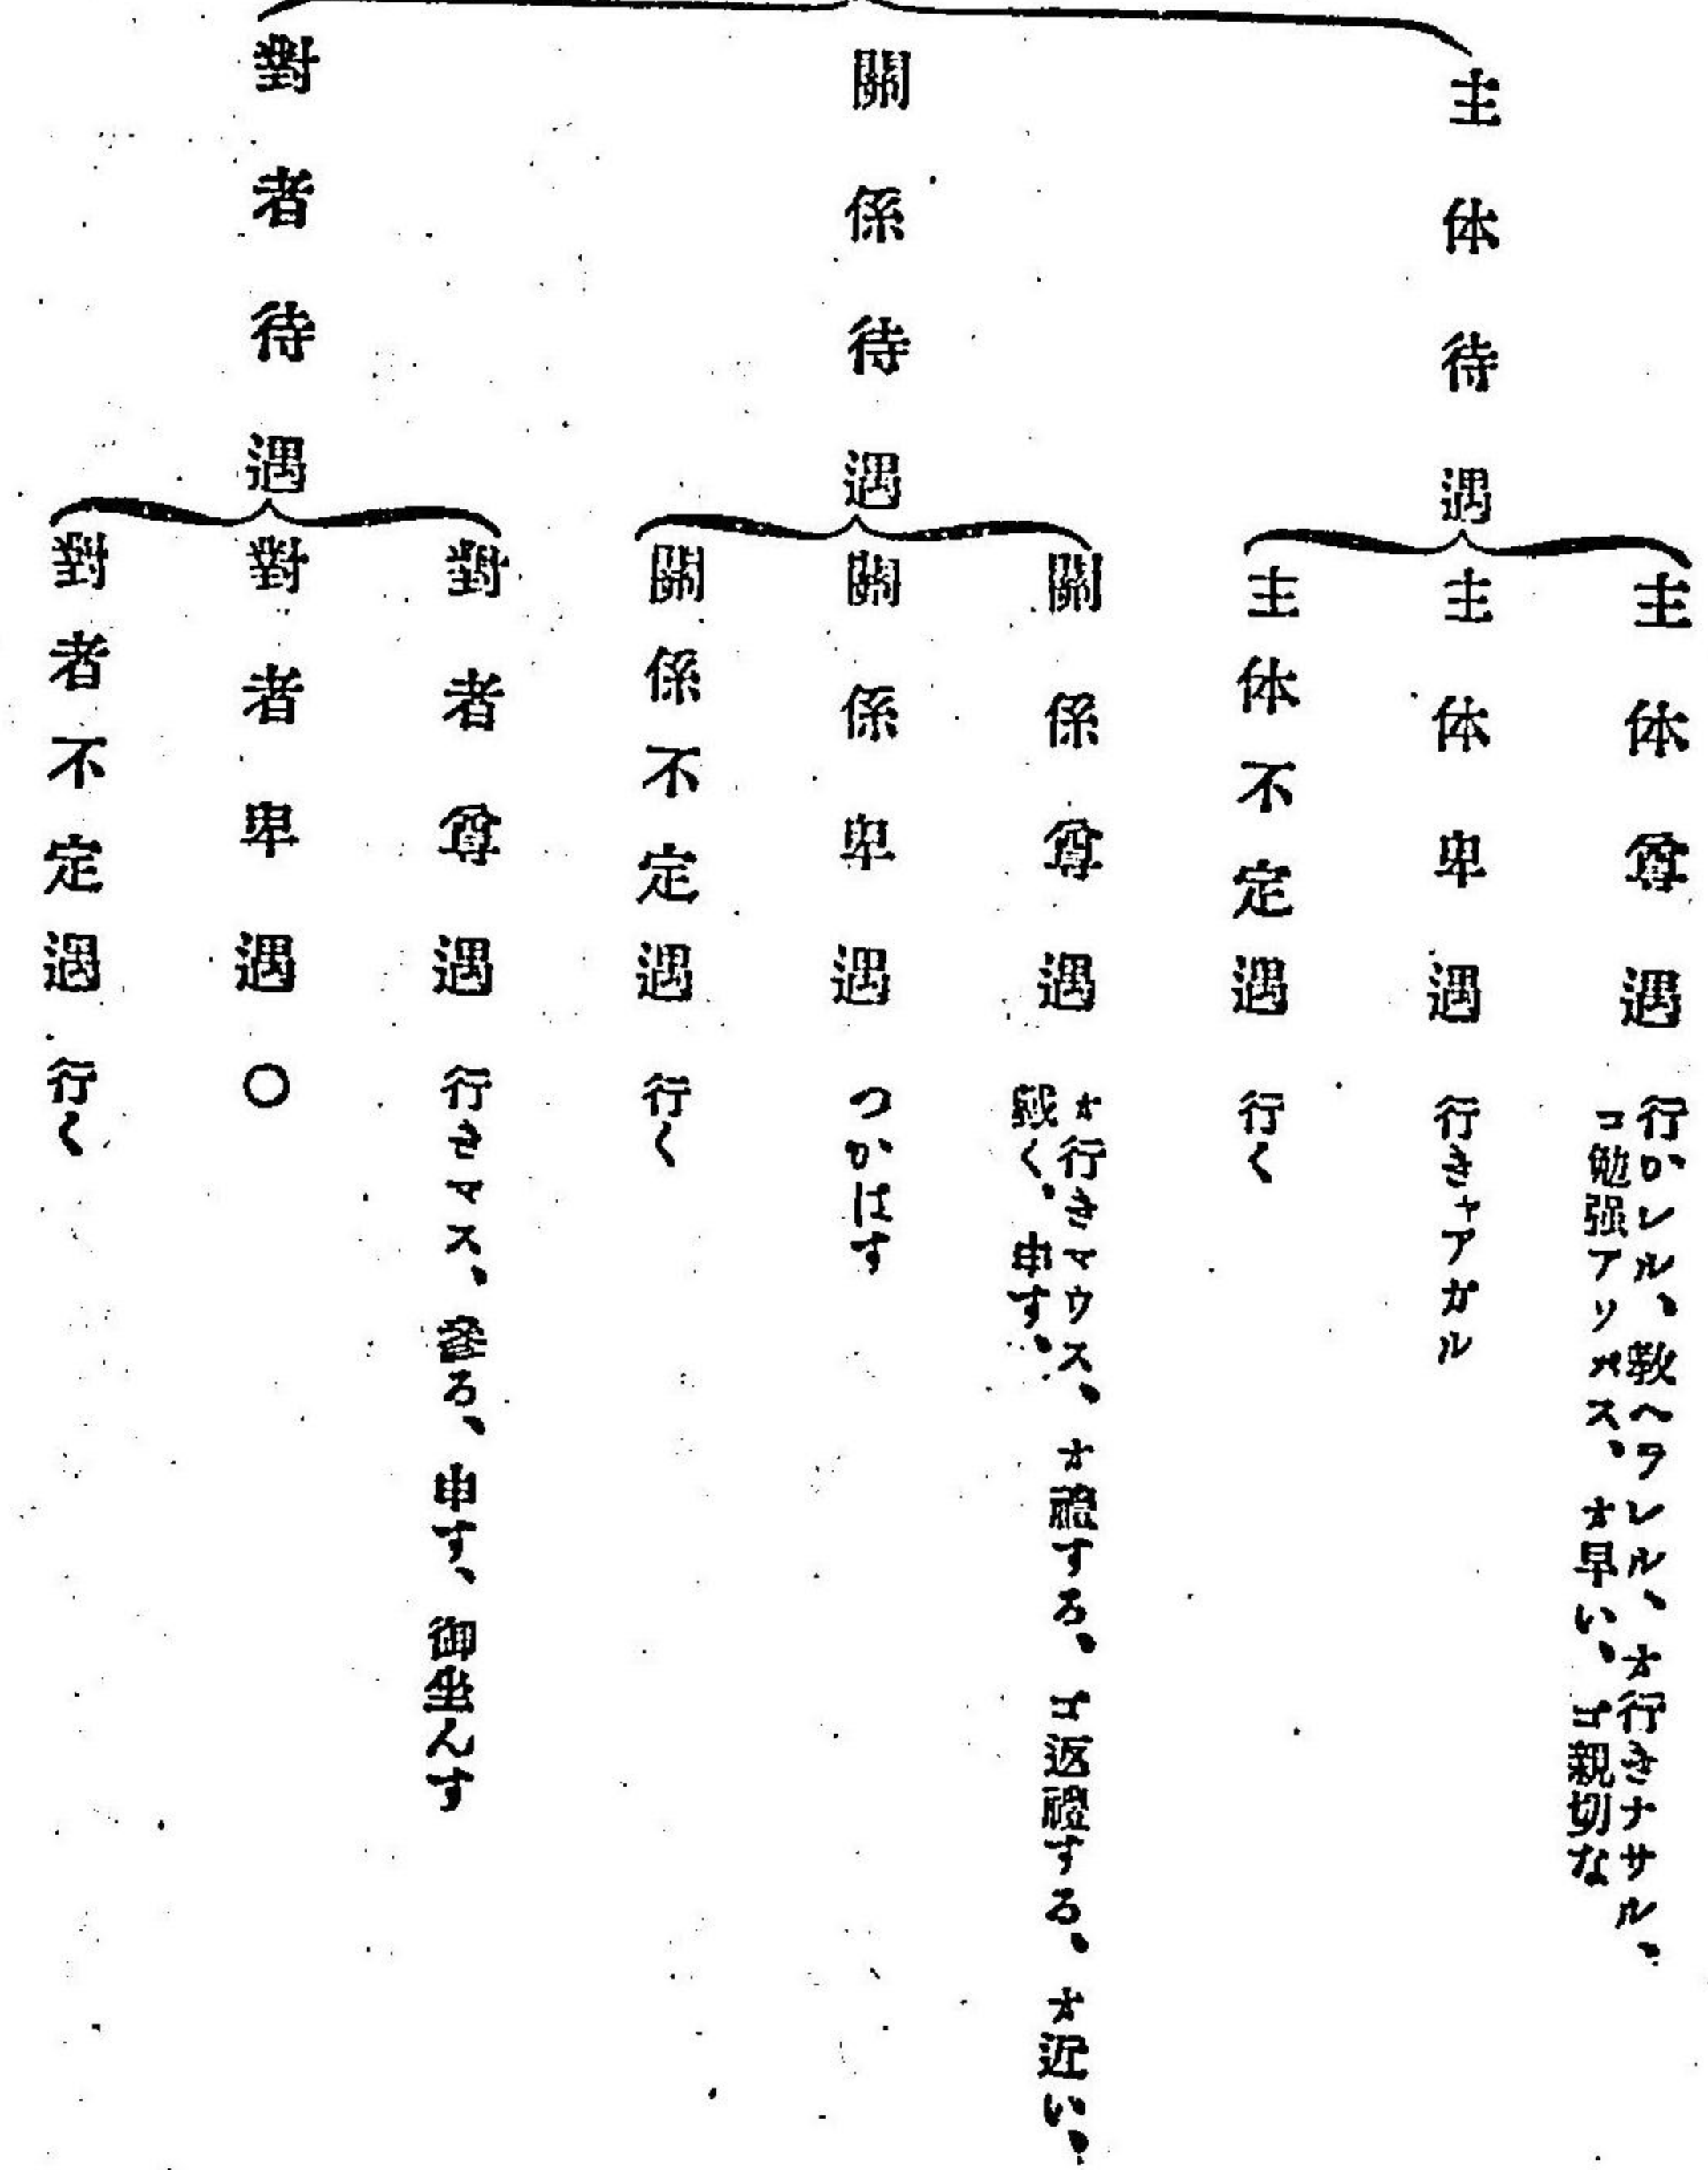 主体待遇
主体尊遇 行かレル、教ヘラレル、オ行きナサル、
ゴ勉强アソバス、オ早い、ゴ親切な
主体卑遇 行きャアガル
主体不定遇 行く
關係待遇
關係尊遇 オ行きマウス、オ禮する、ゴ返禮する、オ近い、
戴く、申す、
關係卑遇 つかはす
關係不定遇 行く
對者待遇
對者尊遇 行きマス、參る、申す、御坐んす
對者卑遇 〇
對者不定遇 行く